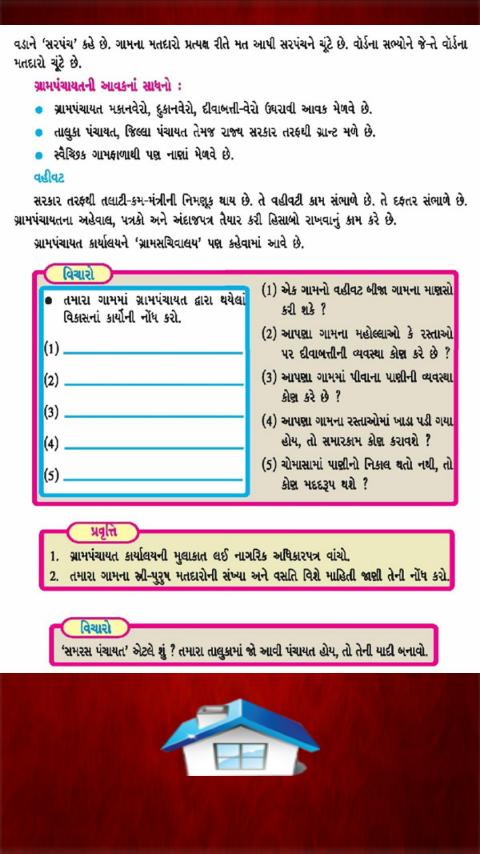 વડાને ‘સરપંચ’ કહે છે. ગામના મતદારો પ્રત્યક્ષ રીતે મત આપી સરપંચને ચૂંટે છે. વૉર્ડના સભ્યોને જે-તે વૉર્ડના
મતદારો ચૂંટે છે.
ગ્રામપંચાયતની આવકનાં સાધનો :
● ગ્રામપંચાયત મકાનવેરો, દુકાનવેરો, દીવાબત્તી-વેરો ઉઘરાવી આવક મેળવે છે.
● તાલુકા પંચાયત, જિલ્લા પંચાયત તેમજ રાજ્ય સરકાર તરફથી ગ્રાન્ટ મળે છે.
● સ્વૈચ્છિક ગામફાળાથી પણ નાણાં મેળવે છે.
વહીવટ
સરકાર તરફથી તલાટી-કમ-મંત્રીની નિમણૂક થાય છે. તે વહીવટી કામ સંભાળે છે. તે દફતર સંભાળે છે.
ગ્રામપંચાયતના અહેવાલ, પત્રકો અને અંદાજપત્ર તૈયાર કરી હિસાબો રાખવાનું કામ કરે છે.
ગ્રામપંચાયત કાર્યાલયને ‘ગ્રામસચિવાલય’ પણ કહેવામાં આવે છે.
વિચારો
● તમારા ગામમાં ગ્રામપંચાયત દ્વારા થયેલાં
વિકાસનાં કાર્યોની નોંધ કરો.
(1)
(2)
(3)
(4)
(5)
(1) એક ગામનો વહીવટ બીજા ગામના માણસો
કરી શકે ?
(2) આપણા ગામના મહોલ્લાઓ કે રસ્તાઓ
પર દીવાબત્તીની વ્યવસ્થા કોણ કરે છે ?
(3) આપણા ગામમાં પીવાના પાણીની વ્યવસ્થા
કોણ કરે છે ?
(4) આપણા ગામના રસ્તાઓમાં ખાડા પડી ગયા
હોય, તો સમારકામ કોણ કરાવશે ?
(5) ચોમાસામાં પાણીનો નિકાલ થતો નથી, તો
કોણ મદદરૂપ થશે ?
પ્રવૃત્તિ
1. ગ્રામપંચાયત કાર્યાલયની મુલાકાત લઈ નાગરિક અધિકારપત્ર વાંચો.
2. તમારા ગામના સ્ત્રી-પુરુષ મતદારોની સંખ્યા અને વસતિ વિશે માહિતી જાણી તેની નોંધ કરો.
વિચારો
‘સમરસ પંચાયત’ એટલે શું ? તમારા તાલુકામાં જો આવી પંચાયત હોય, તો તેની યાદી બનાવો.